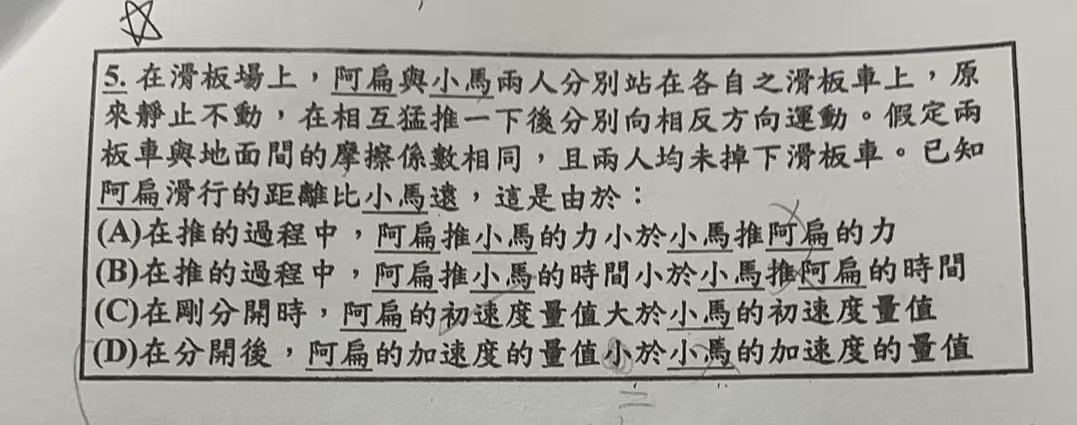 5. 在滑板場上，阿扁與小馬兩人分別站在各自之滑板車上，原
來靜止不動，在相互猛推一下後分別向相反方向運動。假定兩
板車與地面間的摩擦係數相同，且兩人均未掉下滑板車。已知
阿扁滑行的距離比小馬遠，這是由於：
(A)在推的過程中，阿扁推小馬的力小於小馬推阿扁的力
(B)在推的過程中，阿扁推小馬的時間小於小馬推阿扁的時間
(C)在剛分開時，阿扁的初速度量值大於小馬的初速度量值
(D)在分開後，阿扁的加速度的量值小於小馬的加速度的量值
=